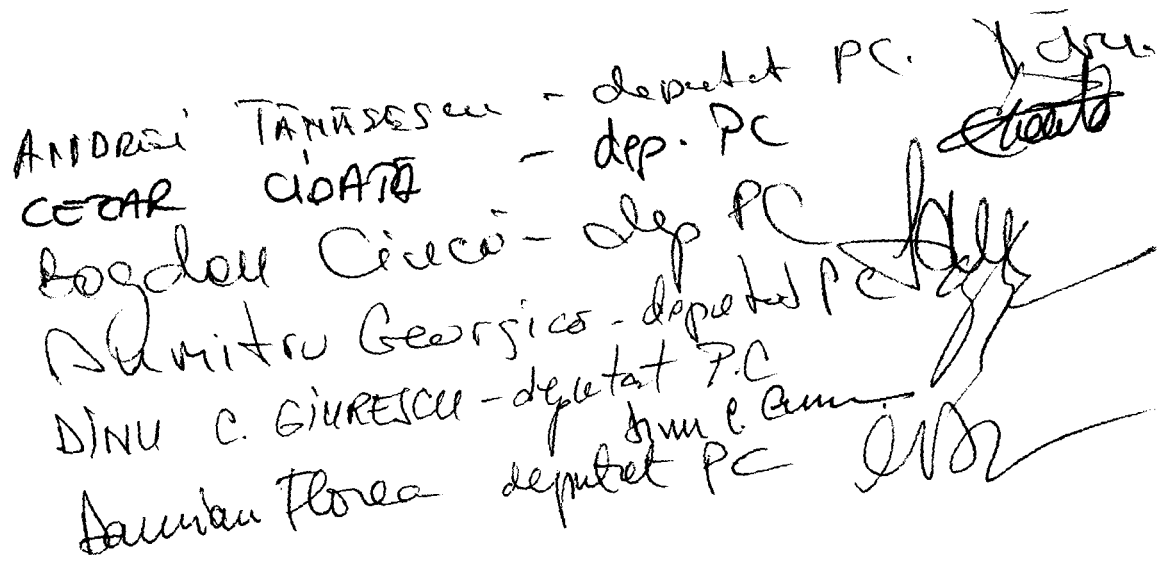 ANDREI TĂNĂSESCU - deputat PC.
CEZAR CIOATĂ - dep. PC
Bogdan Ciucă - dep PC
Dumitru Georgică - deputat PC
DINU C. GIURESCU - deputat P.C
Dinu C.
Damian Florea deputat PC